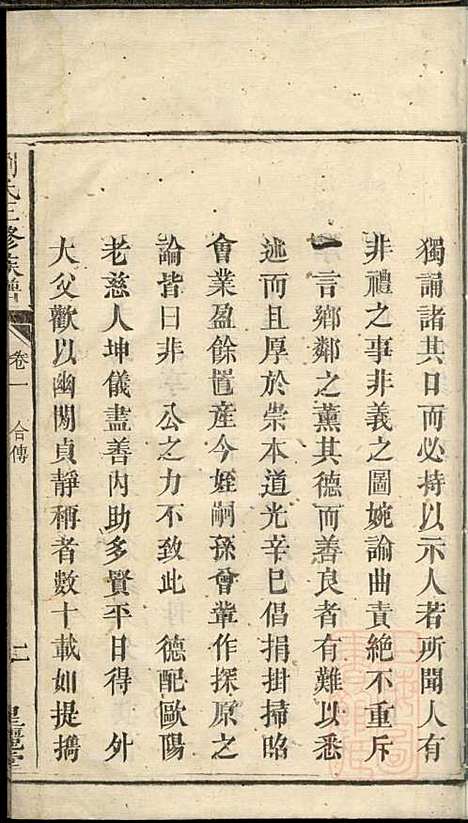 獨誦諸其口而必持以示人若所聞人有
非禮之事非義之圖婉論曲責絕不重斥
一言鄉鄰之薰其德而善良者有難以悉
述而且厚於崇本道光辛巳倡捐掛掃昭
會業盈餘置產今姪嗣孫曾輩作探原之
論皆曰非 公之力不致此 德配歐陽
老慈人坤儀盡善內助多賢平日得 外
大父歡以幽閒貞靜稱者數十載如提携
劉氏三修族譜
卷一 合傳
二